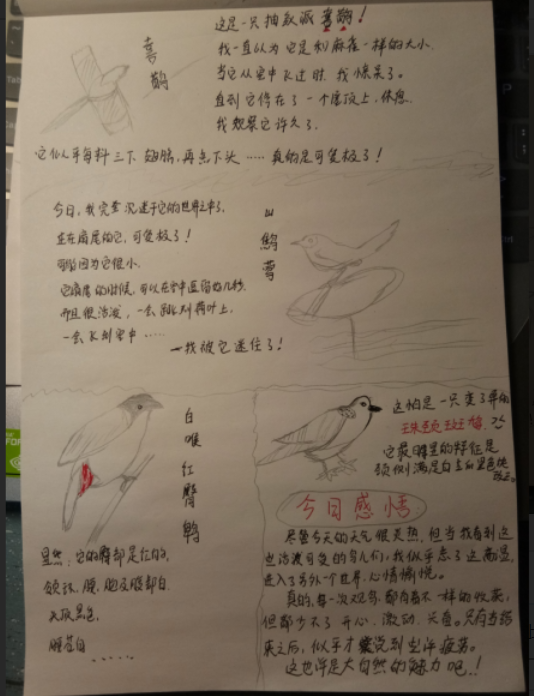 这是一只抽象派喜鹊！
喜鹊
我一直以为它是和麻雀一样的大小，
当它从空中飞过时，我惊呆了。
直到它停在了一个屋顶上，休息，
我观察它许久了，
它似乎每抖三下翅膀，再点下头……真的是可爱极了！
今日，我完全沉迷于它的世界之中了，
正在扇尾的它，可爱极了！
可能因为它很小，
它的时候，可以在空中停留几秒，
而且很活泼，一会跳到荷叶上，
一会飞到空中……
—我被它迷住了！
山鹡鸰
白喉红臀鹎
显然：它的臀部是红的，
颏、喉、胸及腹部白，
头顶黑色，
腰苍白
……
这怕是一只变了异的
珠颈斑鸠，
它最明显的特征是
颈侧满是白点的黑色块
斑。
今日感悟
尽管今天的天气很炎热，但当我看到这
些活泼可爱的鸟儿们，我似乎忘了这高温，
进入了另外一个世界，心情愉悦。
真的，每一次观鸟，都有着不一样的收获，
但都少不了开心、激动、兴奋。只有当结
束之后，似乎才意识到些许疲劳。
这也许是大自然的魅力吧！